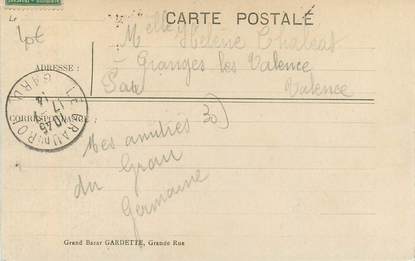 CARTE POSTALE
40€
Melle Hélène Chaleat
ADRESSE :
à Granges les Valence
Par Valence
CORRESPONDANCE :
30
LE GRAU DU ROI
GARD
10 45
17
14
Mes amitiés
du Grau
Germaine
Grand Bazar GARDETTE, Grande Rue